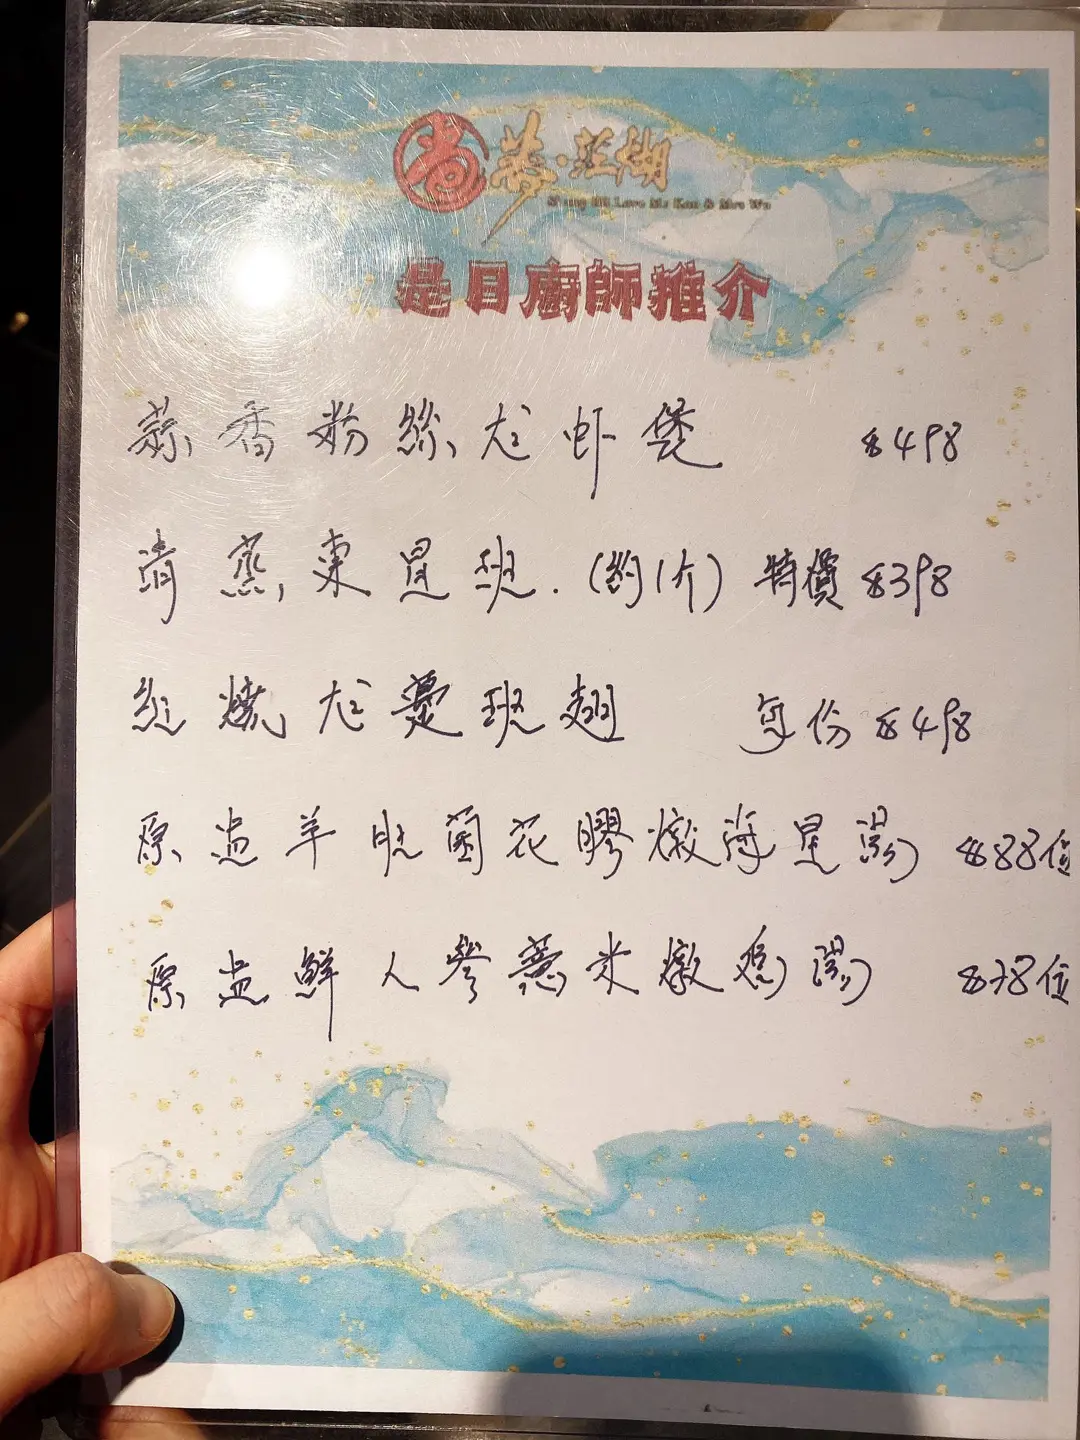 尚
慕·芷湖
Shang Hi Love Ms Kan & Mrs Wu
是日廚師推介
蒜香粉絲龙虾煲 $498
清蒸東星班.(約1斤) 特價$398
紅燒龙躉班翅 每份$498
原盅羊肚菌花膠燉海星湯 $88位
原盅鮮人參薏米燉鳥湯 $78位